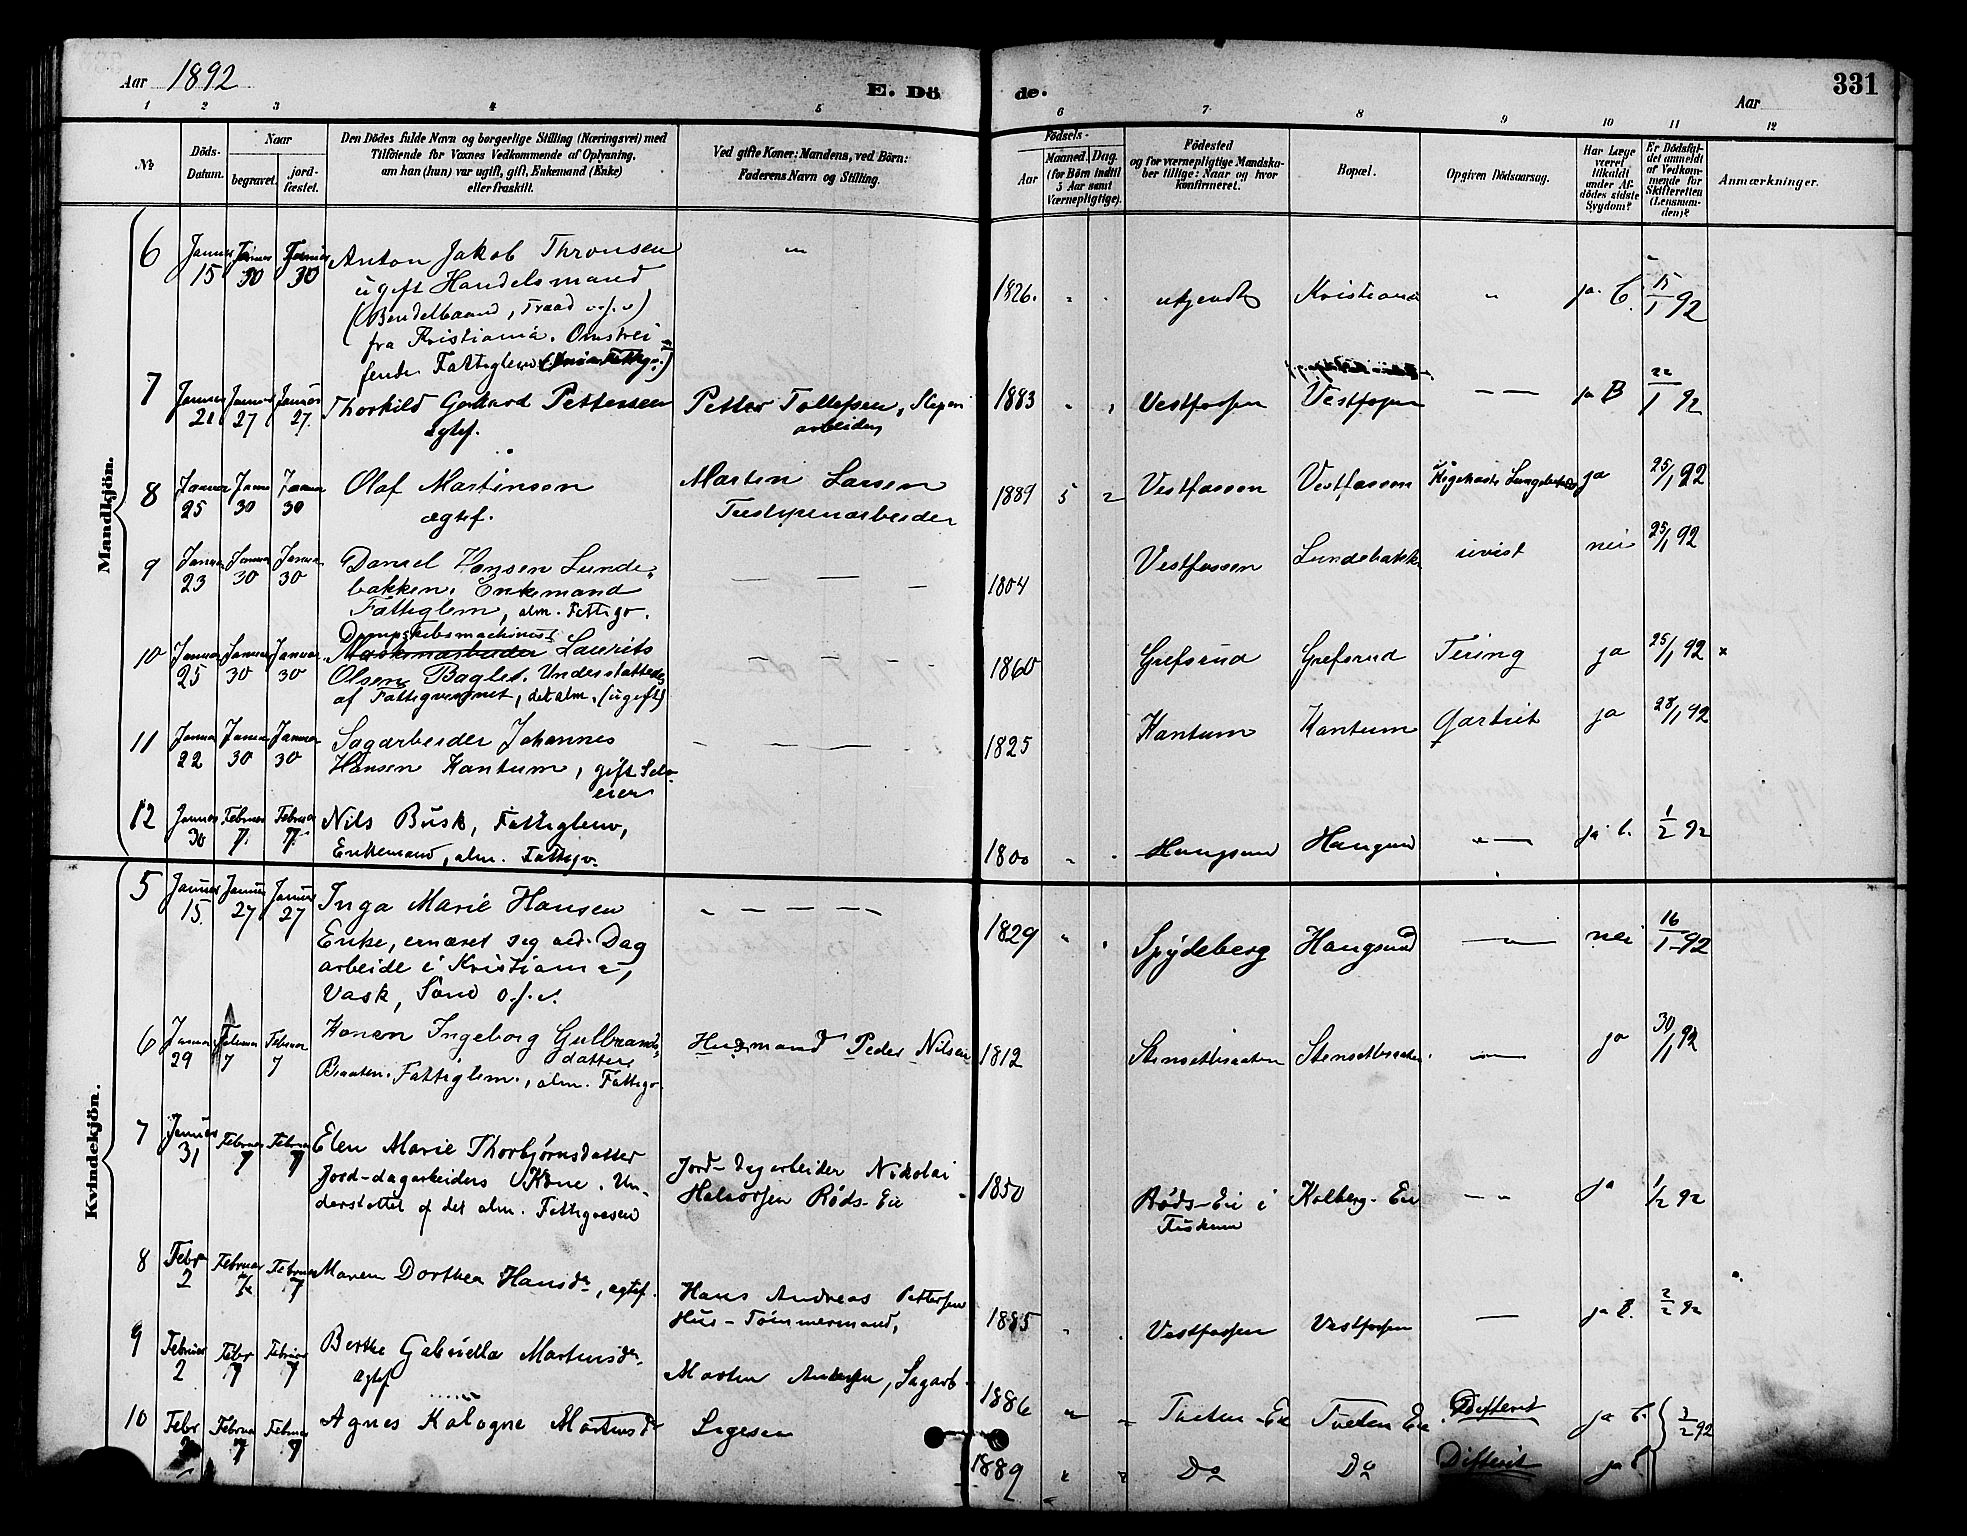 Aar 1892
E. Dö de.
Aar
331
1 2 3 4 5 6 7 8 9 10 11 12
№
Döds-
Datum.
Naar
begravet.
jord-
fæstet.
Den Dödes fulde Navn og borgerlige Stilling (Næringsvei) med
Tilföiende for Voxnes Vedkommende af Oplysning,
om han (hun) var ugift, gift, Enkemand (Enke)
eller fraskilt.
Ved gifte Koner: Mandens, ved Börn:
Faderens Navn og Stilling.
Födsels-
Aar
Maaned. Dag.
(for Börn indtil
5 Aar samt
Værnepligtige).
Födested
og for værnepligtige Mandska-
ber tillige: Naar og hvor
konfirmeret.
Bopæl.
Opgiven Dödsaarsag.
Har Læge
været
tilkaldt
under Af-
dödes sidste
Sygdom?
Er Dödsfal-
det anmeldt
af Vedkom-
mende for
Skifteretten
(Lensman-
den)?
Anmærkninger.
Mandkjön.
6 Januar 15 Januar 30 Januar 30 Anton Jakob Thronsen
ugift Handelsmand
(Bendelbaand, Traad o.s.v)
fra Kristiania. Omstrei-
fende Fattiglem
1826. ukjendt Kristiania " ja. C. 15/1 92
7 Januar 21 Januar 27 Januar 27. Thorkild Gerhard Pettersen
ægtef.
Petter Tollefsen, Sliperi
arbeider
1883 Vestfossen Vestfossen — — ja B 22/1 92
8 Januar 25 Janua 30 Januar 30 Olaf Martinsen
ægtef.
Martin Larsen
Træsliperiarbeider
1889 5 2 Vestfossen Vestfossen Kighoste Lungebet ja 25/1 92
9 Januar 23 Januar 30 Januar 30 Daniel Hansen Lunde-
bakken. Enkemand
Fattiglem, alm. Fattigv.
— — —
1804 Vestfossen Lundebakk uvist nei 25/1 92
Dampskibsmachinist
10 Januar 25 Januar 30 Januar 30 Maskinarbeider Laurits
Olsen Baglet. Understøttedes
af Fattigvæsnet, det alm. (ugift)
1860 Grefsrud Grefsrud Tæring ja 25/1 92 x
11 Januar 22 Januar 30 Januar 30 Sagarbeider Johannes
Hansen Kantum, gift Selv-
eier
1825 Kantum Kantum Gastrit ja 28/1 92
12 Januar 30 Februar 7. Februar 7. Nils Busk, Fattiglem,
Enkemand, alm. Fattigv.
1800 Haugsund Haugsund " — ja C. 1/2 92
Kvindekjön.
5 Januar 15. Januar 27 Januar 27 Inga Marie Hansen
Enke, ernæret seg ved Dag
arbeide i Kristiania,
Vask, Søm o.s.v.
1829 Spydeberg Haugsund — nei 16/1 92
6 Januar 29 Februar 7 Februar 7 Konen Ingeborg Gulbrands-
datter
Braaten. Fattiglem., alm. Fattigv.
Husmand Peder Nilsen
1812 Stensetbraaten Stensetbraaten — ja 30/1 92
7 Januar 31 Februar 7 Februar 7 Elen Marie Thorbjørnsdatter
Jord-dagarbeiders Kone. Un-
derstøttet af det alm. Fattigvæsen
Jord-dagarbeider Nikolai
Halvorsen Røds-Eie
1850 Røds-Eie i
Fiskum
Kolberg-Eie — " ja 1/2 92
8 Febr 2 Februar 7 Februar 7 Maren Dorthea Hansdr, ægtef.
Hans Andreas Pettersen
Hus-Tømmermand,
1885 Vestfossen Vestfossen — ja B. 2/2 92
9 Februar 2 Febr 7 Februar 7 Berthe Gabriella Martinsdr.
ægtef
Martin Andersen, Sagarb-
1886 " " Tveten-Eie Tveten Eie Difterit ja C. 3/2 92
10 Febr Februar 7 Februar 7 Agnes Kalogne Martinsd
1889 Do Do Difterit ja C